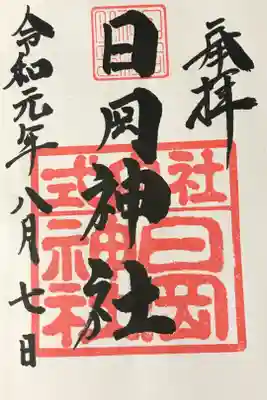 奉拝
日岡神社
令和元年八月七日
式内社
日岡神社